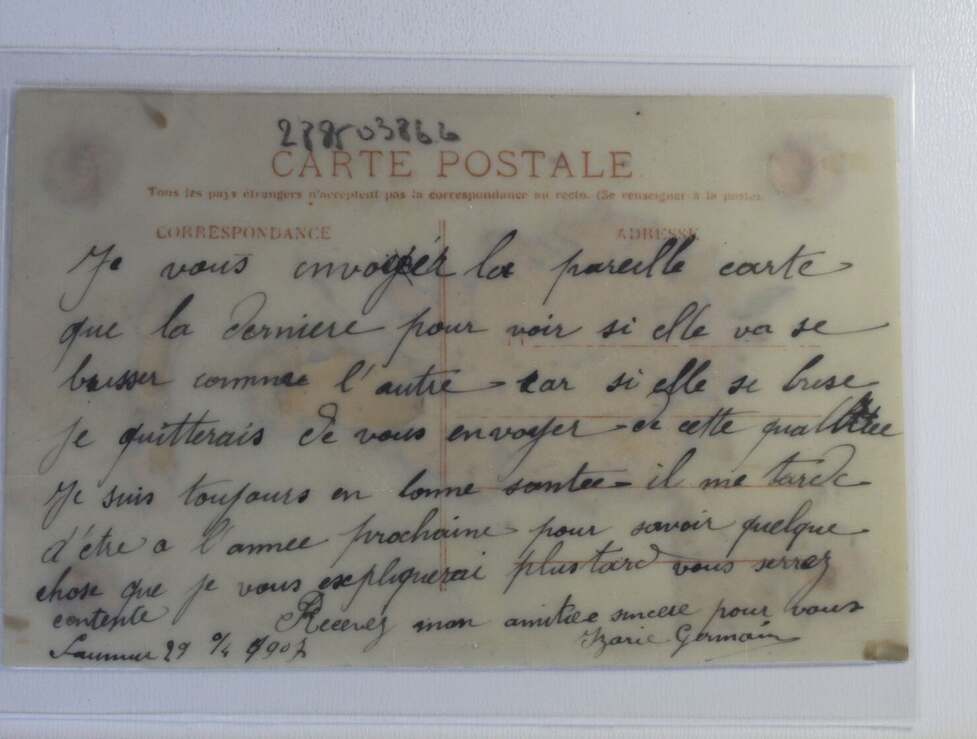 288503866
CARTE POSTALE
Tous les pays étrangers n'acceptent pas la correspondance au recto. (Se renseigner à la poste).
CORRESPONDANCE
ADRESSE
Je vous envoyér la pareille carte
que la derniere pour voir si elle va se
brisser comme l'autre car si elle se brise
je quitterais de vous envoyer de cette qualitee
Je suis toujours en bonne santee il me tarde
d'être a l'annee prochaine pour savoir quelque
chose que je vous expliquerai plus tard vous serrez
contente Recevez mon amitiee sincere pour vous
Saumur 29 Germain